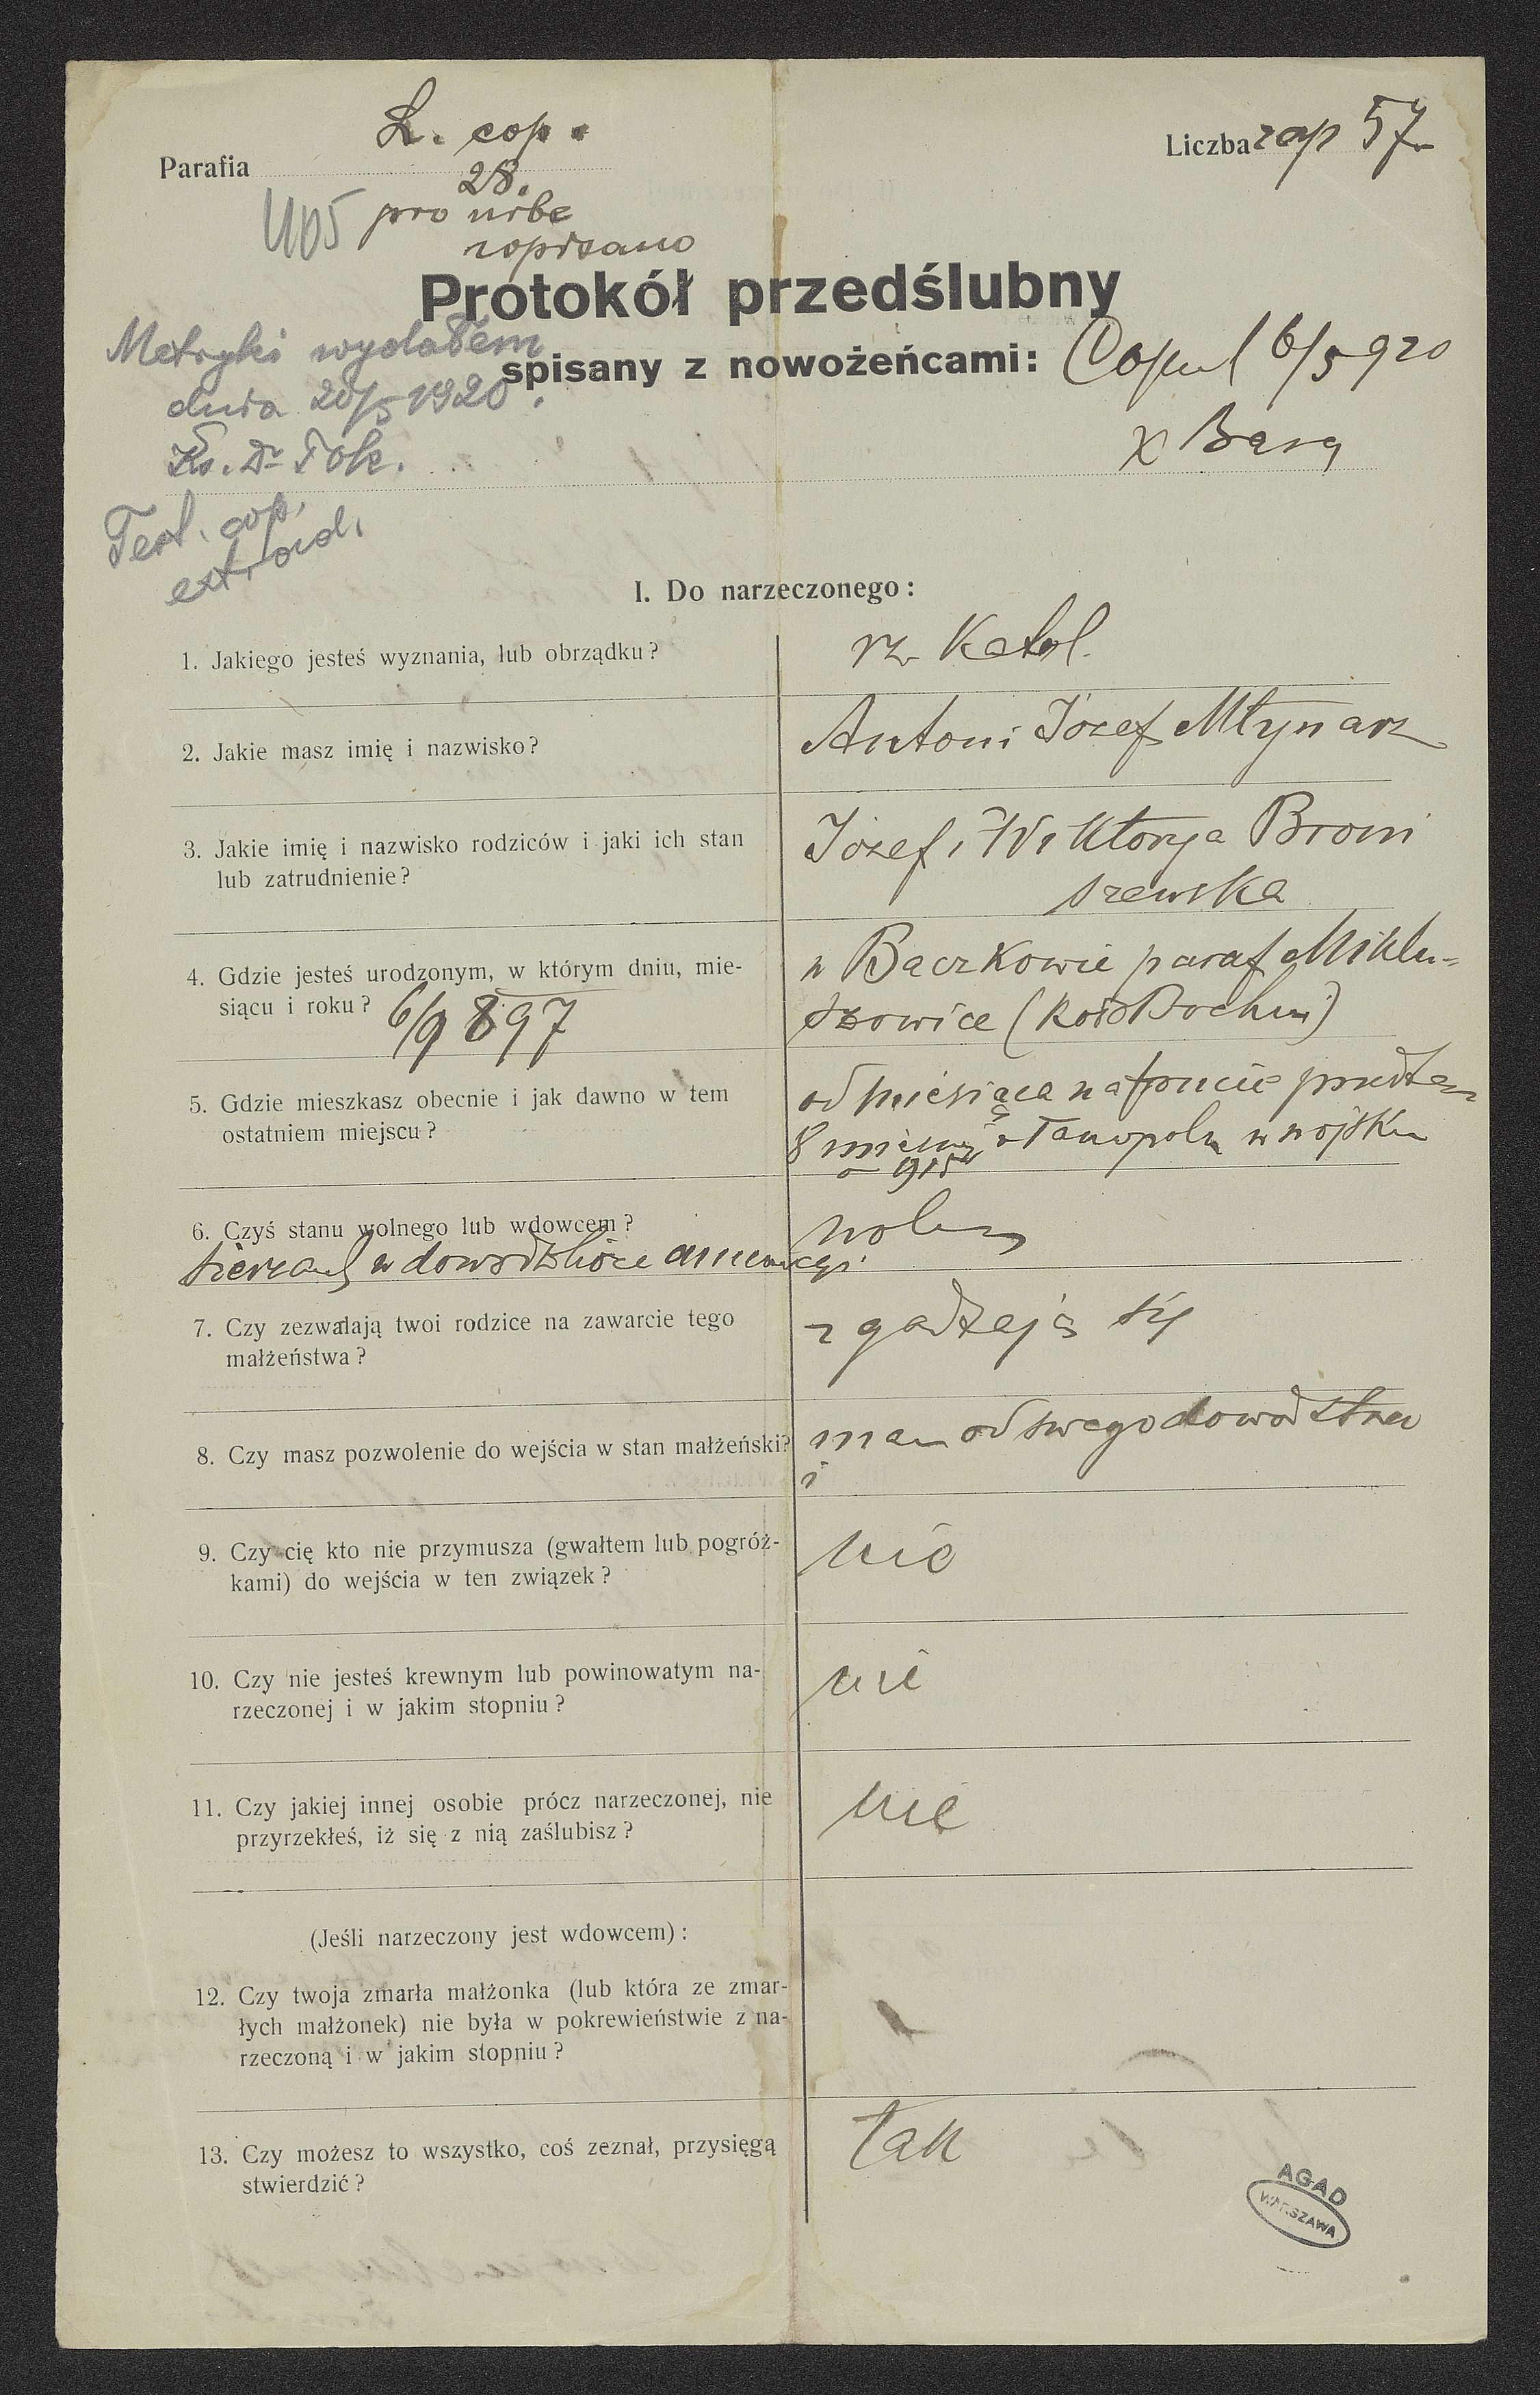 L. cop.
Parafia
Liczba zap 57
28.
1105 pro urbe
zapisano
Protokół przedślubny
spisany z nowożeńcami:
Copul 6/5 920
x Basą
Metryki wydałem
dnia 20/5 1920.
Ks. Dr
Test. cop.
extrad.
I. Do narzeczonego:
1. Jakiego jesteś wyznania, lub obrządku?
rz. Katol.
2. Jakie masz imię i nazwisko?
Antoni Józef Młynarz
3. Jakie imię i nazwisko rodziców i jaki ich stan
lub zatrudnienie?
Józef i Wiktorya Broni
szewska
4. Gdzie jesteś urodzonym, w którym dniu, mie-
siącu i roku? 6/9 897
w Baczkowie paraf Miklu-
szowice (koło Bochni)
5. Gdzie mieszkasz obecnie i jak dawno w tem
ostatniem miejscu?
od miesiąca na froncie przedtem
8 miesięcy w Tarnopolu w wojsku
915
6. Czyś stanu wolnego lub wdowcem?
wolny
w dowództwie
7. Czy zezwalają twoi rodzice na zawarcie tego
małżeństwa?
zgadzają się
8. Czy masz pozwolenie do wejścia w stan małżeński?
mam od swego dowództwa
i
9. Czy cię kto nie przymusza (gwałtem lub pogróż-
kami) do wejścia w ten związek?
nie
10. Czy nie jesteś krewnym lub powinowatym na-
rzeczonej i w jakim stopniu?
nie
11. Czy jakiej innej osobie prócz narzeczonej, nie
przyrzekłeś, iż się z nią zaślubisz?
nie
(Jeśli narzeczony jest wdowcem):
12. Czy twoja zmarła małżonka (lub która ze zmar-
łych małżonek) nie była w pokrewieństwie z na-
rzeczoną i w jakim stopniu?
13. Czy możesz to wszystko, coś zeznał, przysięgą
stwierdzić?
Tak
AGAD
WARSZAWA